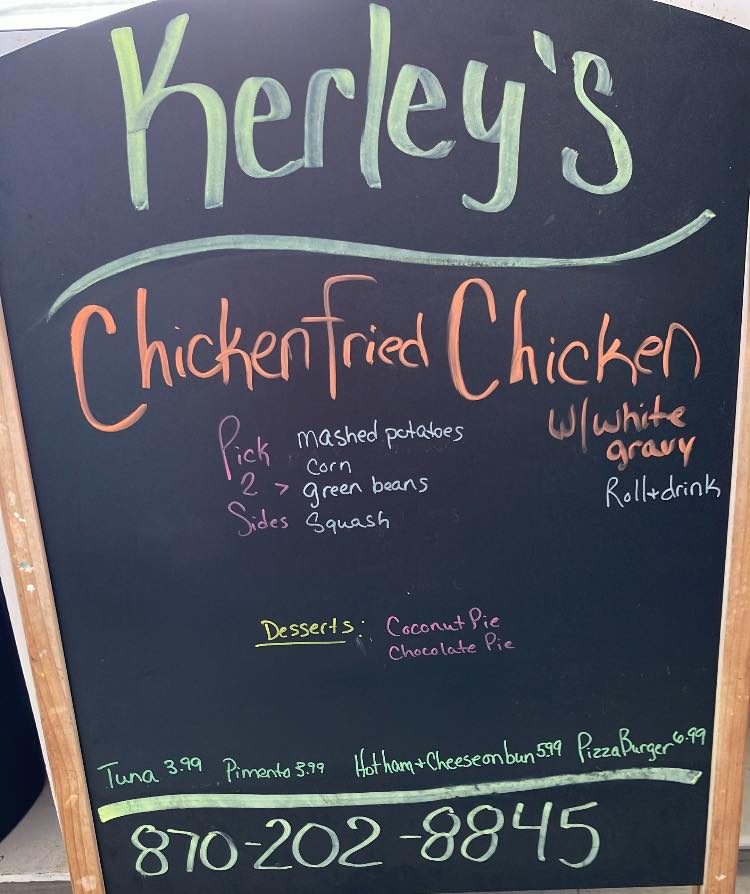 Kerley's
Chicken Fried Chicken
w/white
gravy
Roll+drink
Pick
2 >
Sides
mashed potatoes
corn
green beans
Squash
Desserts: Coconut Pie
Chocolate Pie
Tuna 3.99 Pimento 3.99 Hot ham+Cheese on bun 5.99 Pizza Burger 6.99
870-202-8845